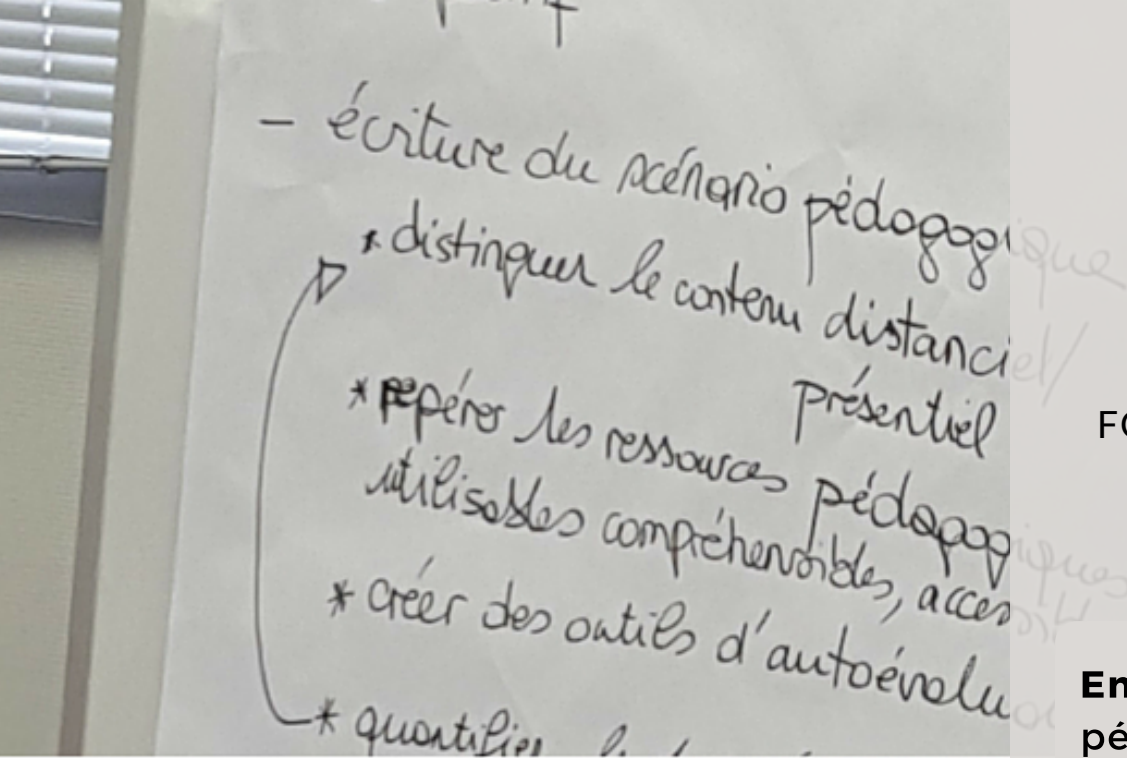 - écriture du scénario pédagogique
* distinguer le contenu distanciel/
présentiel
* repérer les ressources pédagogiques
utilisables compréhensibles, access
* créer des outils d'autoévalu
* quantifier
En
pé